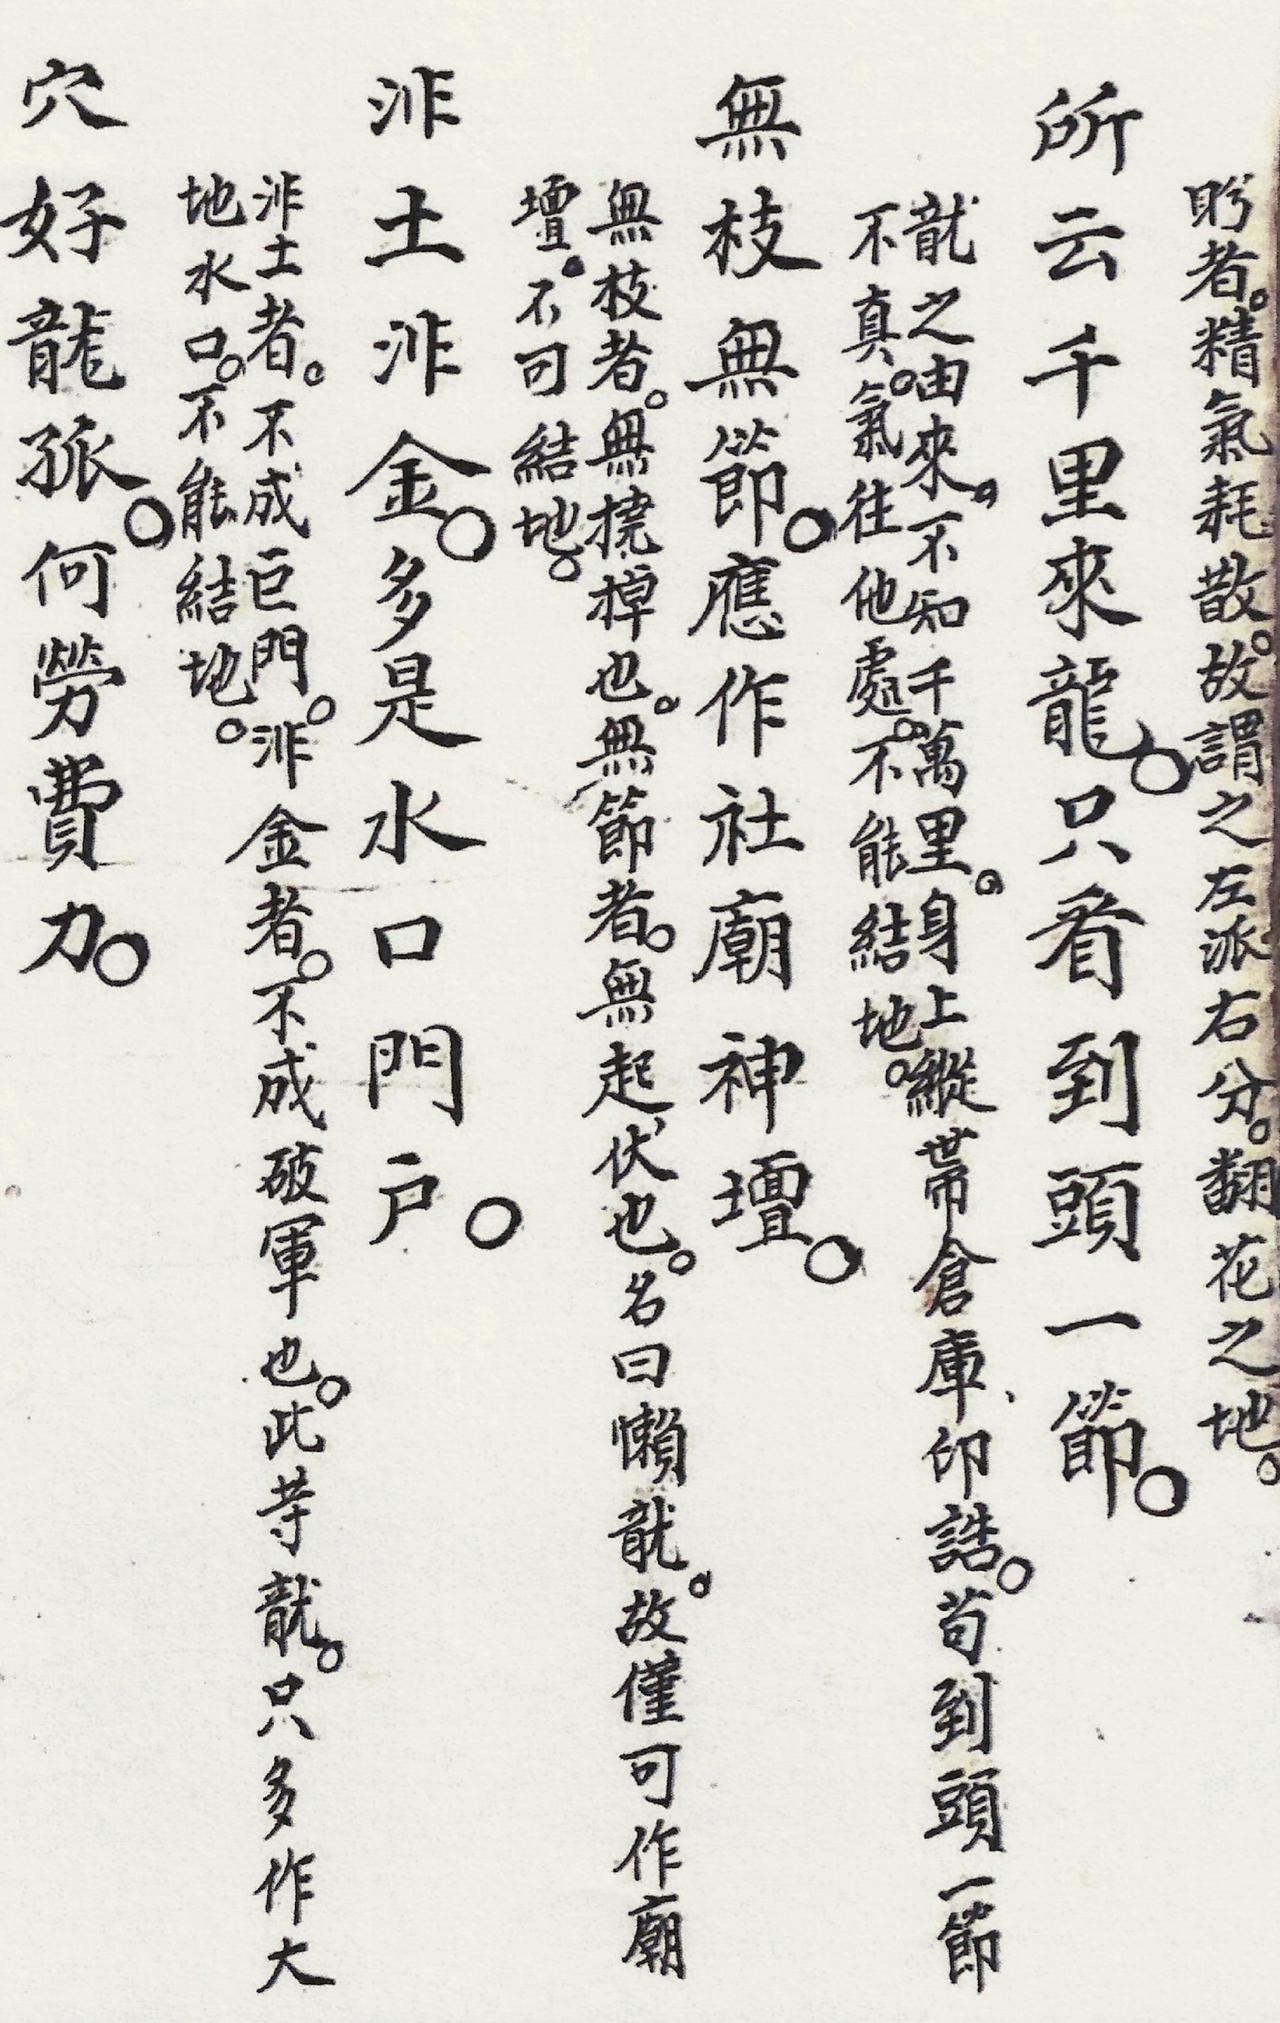 盻者。精氣耗散。故謂之左派右分。翻花之地。
所云千里來龍。只看到頭一節。
龍之由來。不知千萬里。身上縱帶倉庫、印誥。苟到頭一節
不真。氣往他處。不能結地。
無枝無節。應作社廟神壇。
無枝者。無撓掉也。無節者。無起伏也。名曰懶龍。故僅可作廟
壇。不可結地。
非土非金。多是水口門户。
非土者。不成巨門。非金者。不成破軍也。此等龍。只多作大
地水口。不能結地。
穴好龍孤。何勞費力。